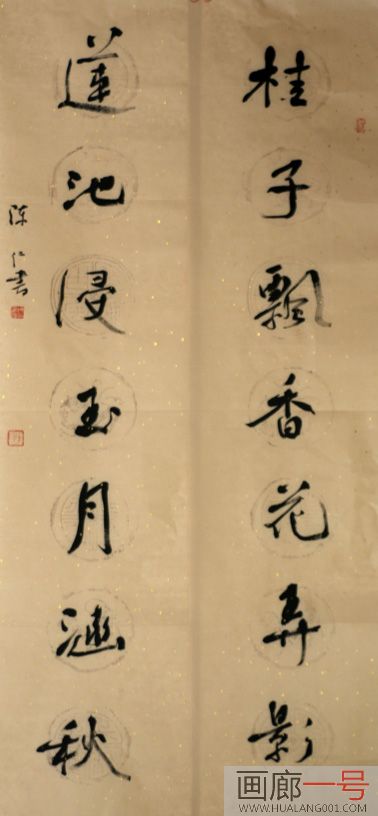 桂子飄香花弄影
蓮池浸玉月涵秋
陳仁書
画廊一号
WWW.HUALANG001.COM